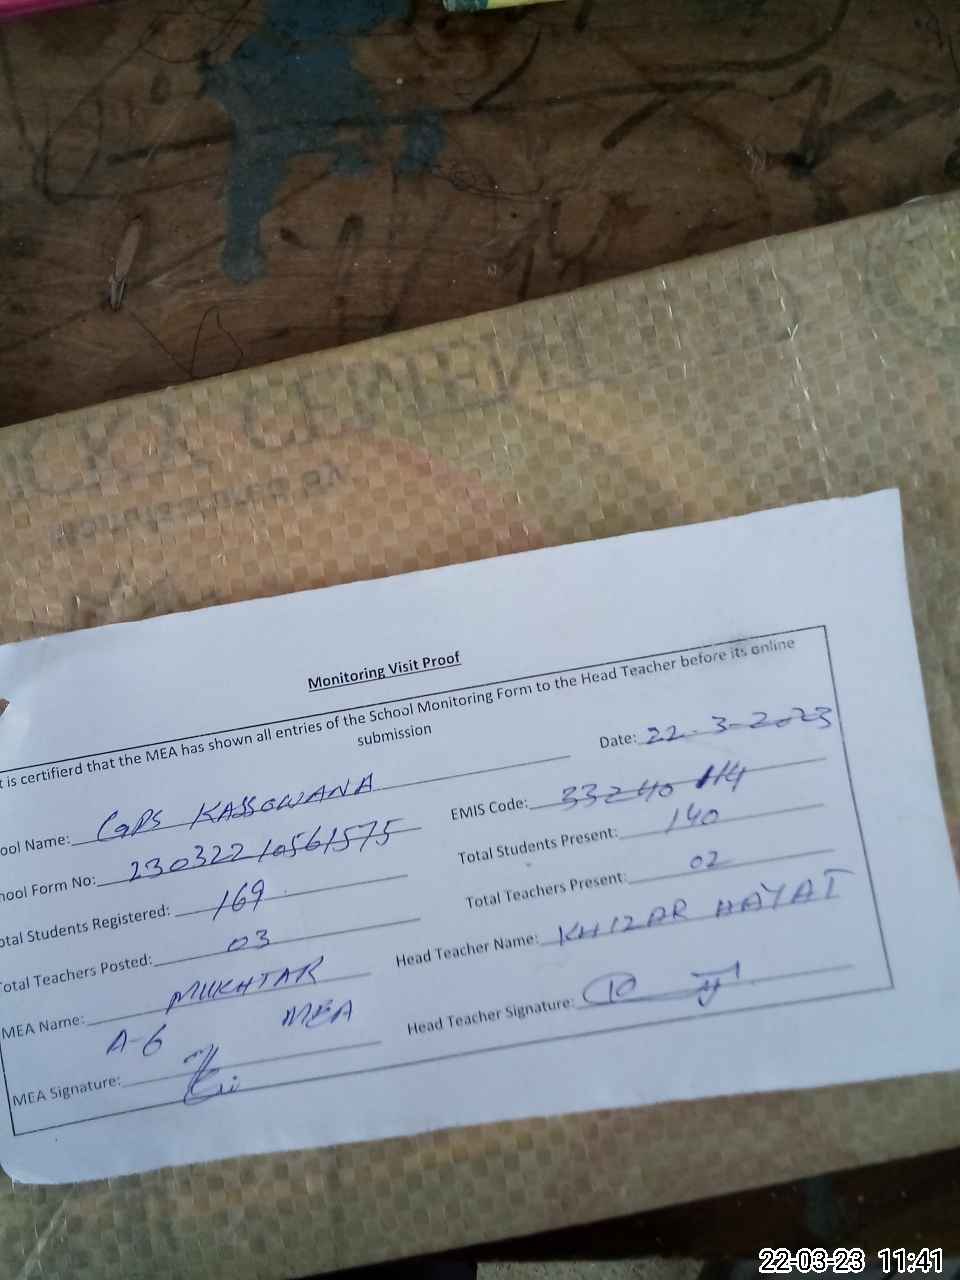 Monitoring Visit Proof
t is certifierd that the MEA has shown all entries of the School Monitoring Form to the Head Teacher before its online
submission
Date: 22-3-2023
ool Name: GPS KASSOWANA
EMIS Code: 33240114
hool Form No: 23032210561575
Total Students Present: 140
otal Students Registered: 169
Total Teachers Present: 02
Total Teachers Posted: 03
Head Teacher Name: KHIZAR HAYAT
MEA Name: MUKHTAR
A-6 MEA
Head Teacher Signature:
MEA Signature:
22-03-23 11:41